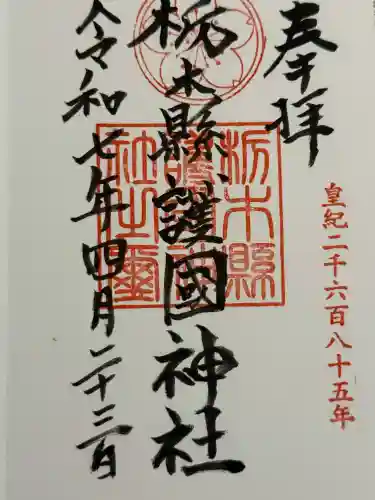 奉拝
皇紀二千六百八十五年
栃木縣護國神社
令和七年四月二十三日
栃木縣
護國神
社之璽